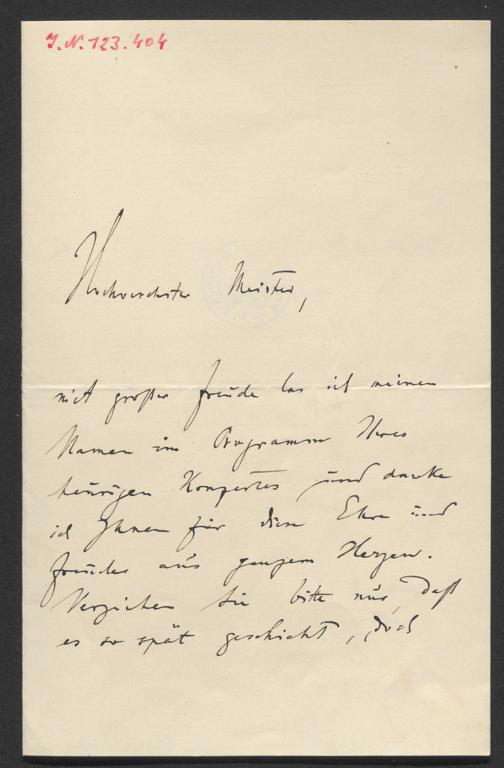 J.N. 123.404
Hochverehrter Meister,
mit großer Freude las ich meinen
Namen im Programm Ihres
heurigen Konzertes und danke
ich Ihnen für diese Ehre und
Freude aus ganzem Herzen.
Verzeihen Sie bitte nur, daß
es so spät geschieht, doch